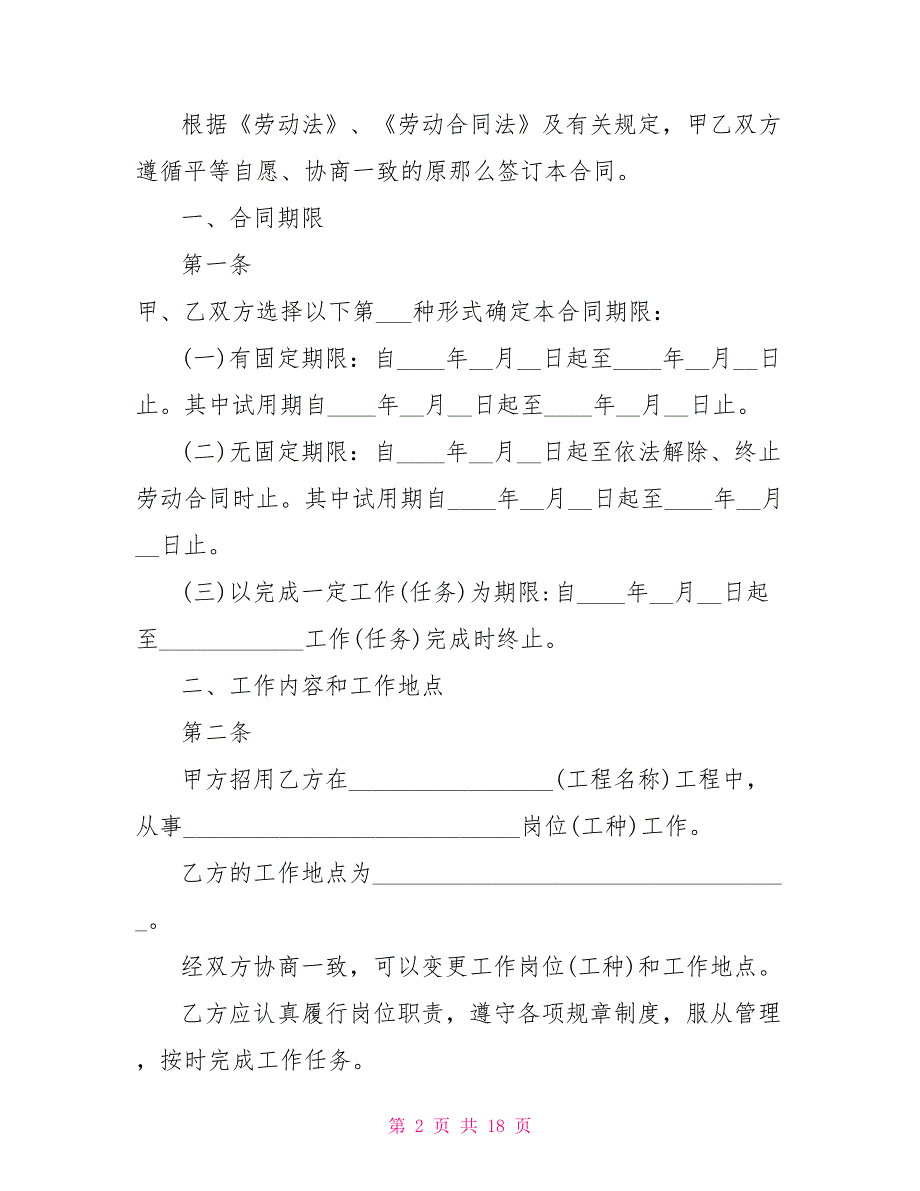 根据《劳动法》、《劳动合同法》及有关规定，甲乙双方
遵循平等自愿、协商一致的原那么签订本合同。
一、合同期限
第一条
甲、乙双方选择以下第___种形式确定本合同期限：
(一)有固定期限：自____年__月__日起至____年__月__日
止。其中试用期自____年__月__日起至____年__月__日止。
(二)无固定期限：自____年__月__日起至依法解除、终止
劳动合同时止。其中试用期自____年__月__日起至____年__月
__日止。
(三)以完成一定工作(任务)为期限:自____年__月__日起
至____________工作(任务)完成时终止。
二、工作内容和工作地点
第二条
甲方招用乙方在_________________(工程名称)工程中，
从事____________________________岗位(工种)工作。
乙方的工作地点为___________________________________
_。
经双方协商一致，可以变更工作岗位(工种)和工作地点。
乙方应认真履行岗位职责，遵守各项规章制度，服从管理
，按时完成工作任务。
第 2 页 共 18 页